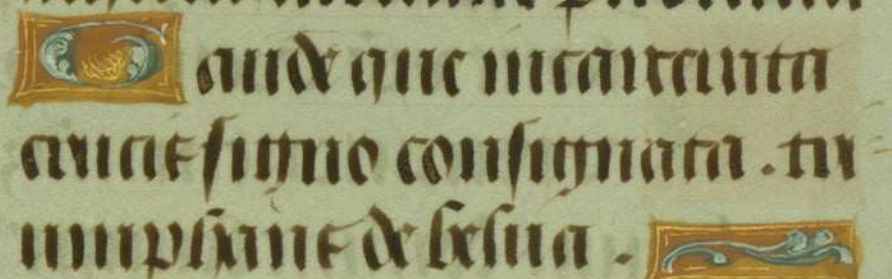 Gaude que incarcerata
crucis signo consignata . tri
umphans de belua .